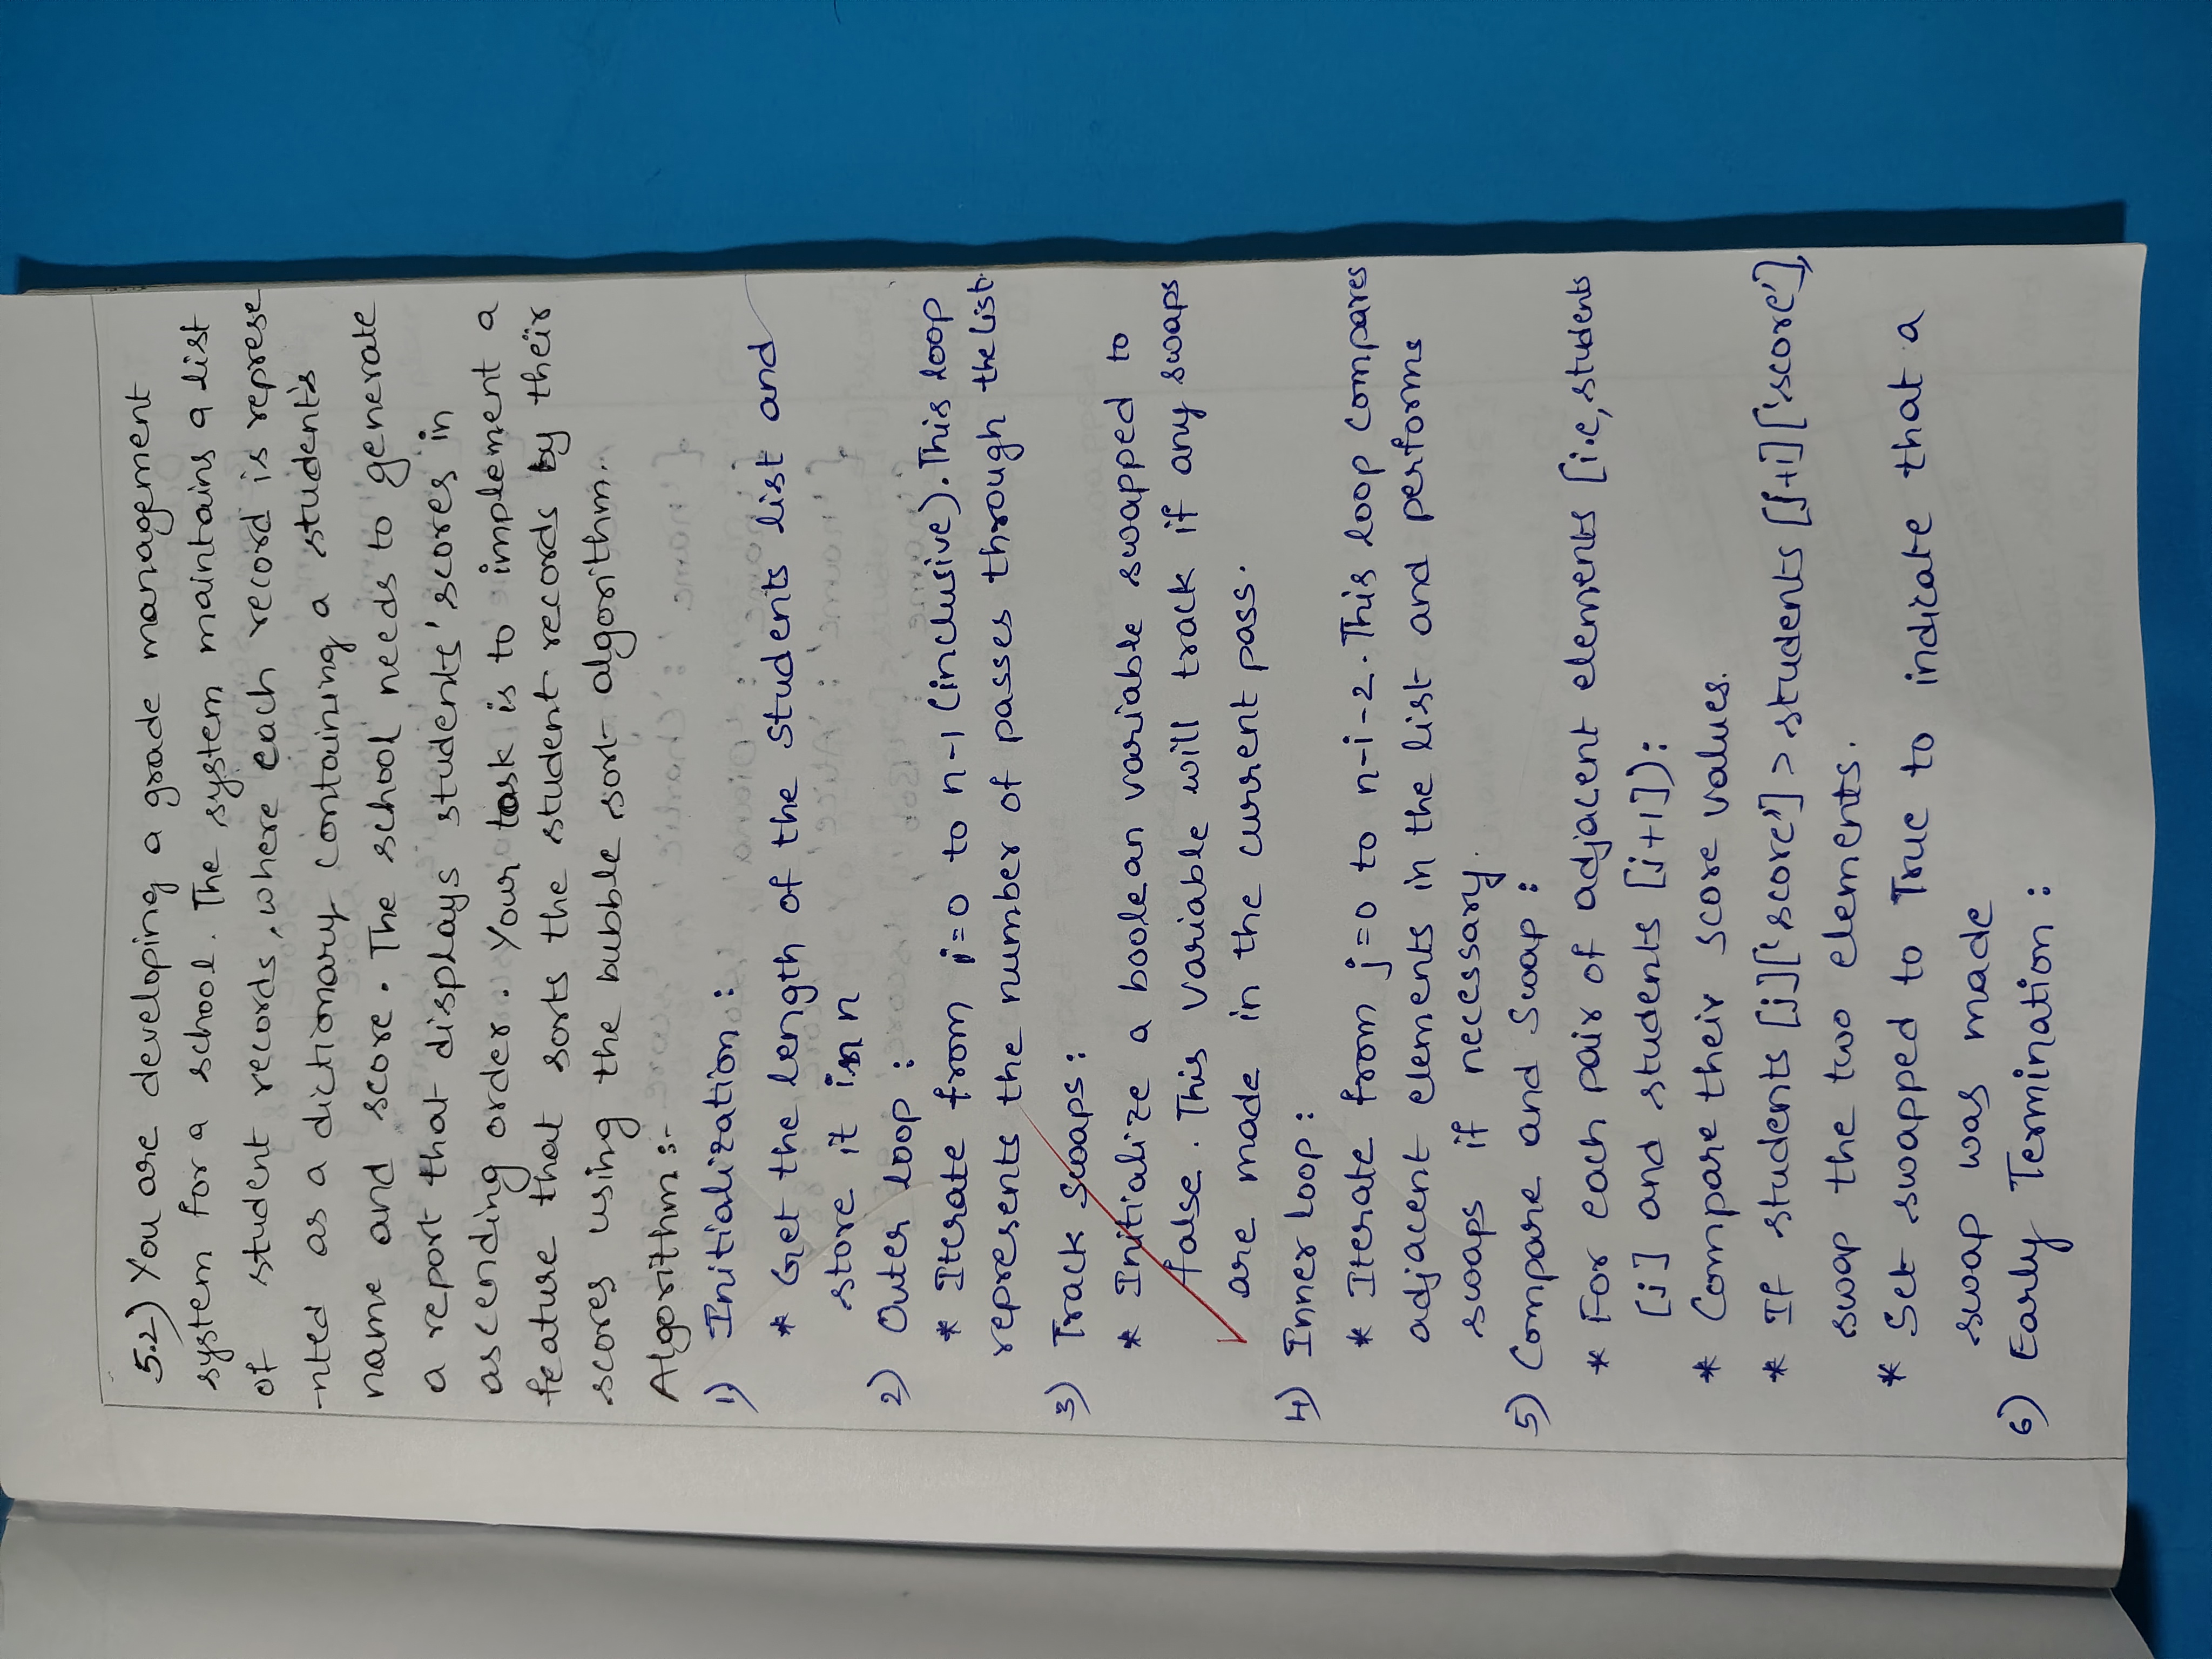 5.2) You are developing a grade management
system for a school. The system maintains a list
of student records, where each record is represe
-nted as a dictionary containing a student's
name and score. The school needs to generate
a report that displays students' scores in
ascending order. Your task is to implement a
feature that sorts the student records by their
scores using the bubble sort algorithm.
Algorithm :-
1) Initialization :
* Get the length of the students list and
store it in n
2) Outer loop :
* Iterate from i=0 to n-1 (inclusive). This loop
represents the number of passes through the list.
3) Track swaps :
* Initialize a boolean variable swapped to
false. This variable will track if any swaps
are made in the current pass.
4) Inner loop :
* Iterate from j=0 to n-i-2. This loop compares
adjacent elements in the list and performs
swaps if necessary.
5) Compare and Swap :
* For each pair of adjacent elements [i.e, students
[j] and students [j+1]):
* Compare their score values.
* If students [j]['score'] > students [j+1]['score'],
swap the two elements.
* Set swapped to True to indicate that a
swap was made
6) Early Termination :